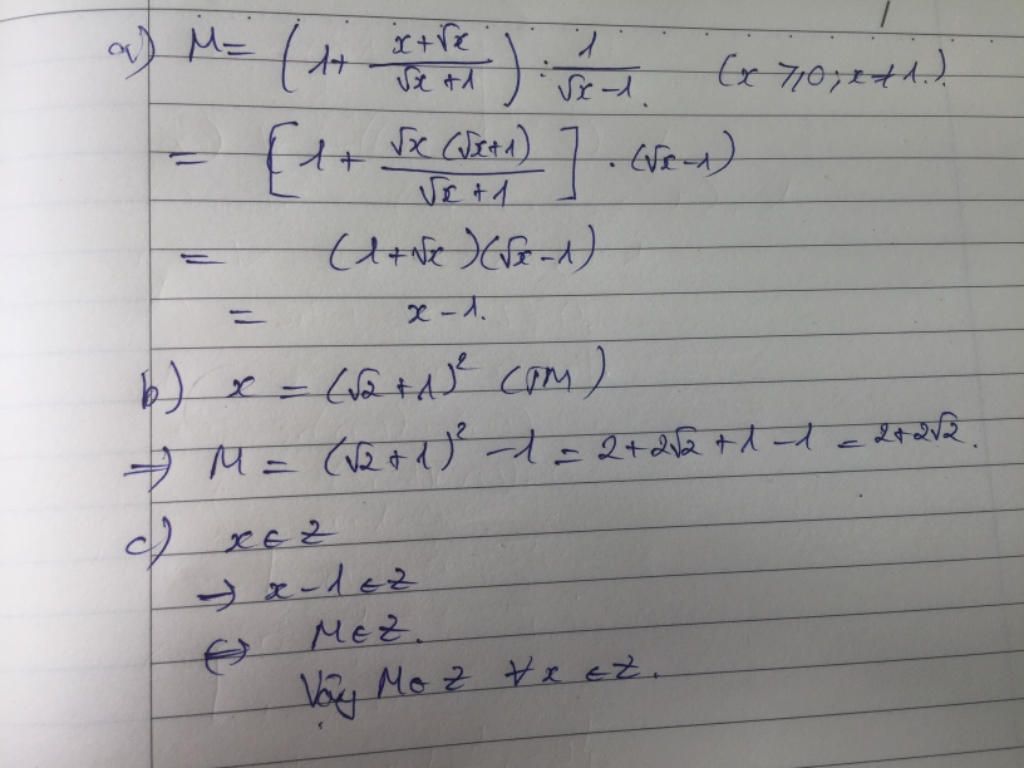 a) M = (1 + (x+√x)/(√x+1)) : 1/(√x-1) (x ≥ 0; x ≠ 1.)
= [1 + √x(√x+1)/(√x+1)] . (√x-1)
= (1+√x)(√x-1)
= x-1.
b) x = (√2+1)² (TM)
→ M = (√2+1)² - 1 = 2+2√2+1-1 = 2+2√2.
c) x ∈ Z
→ x-1 ∈ Z
⇔ M ∈ Z.
Vậy M ∈ Z ∀x ∈ Z.